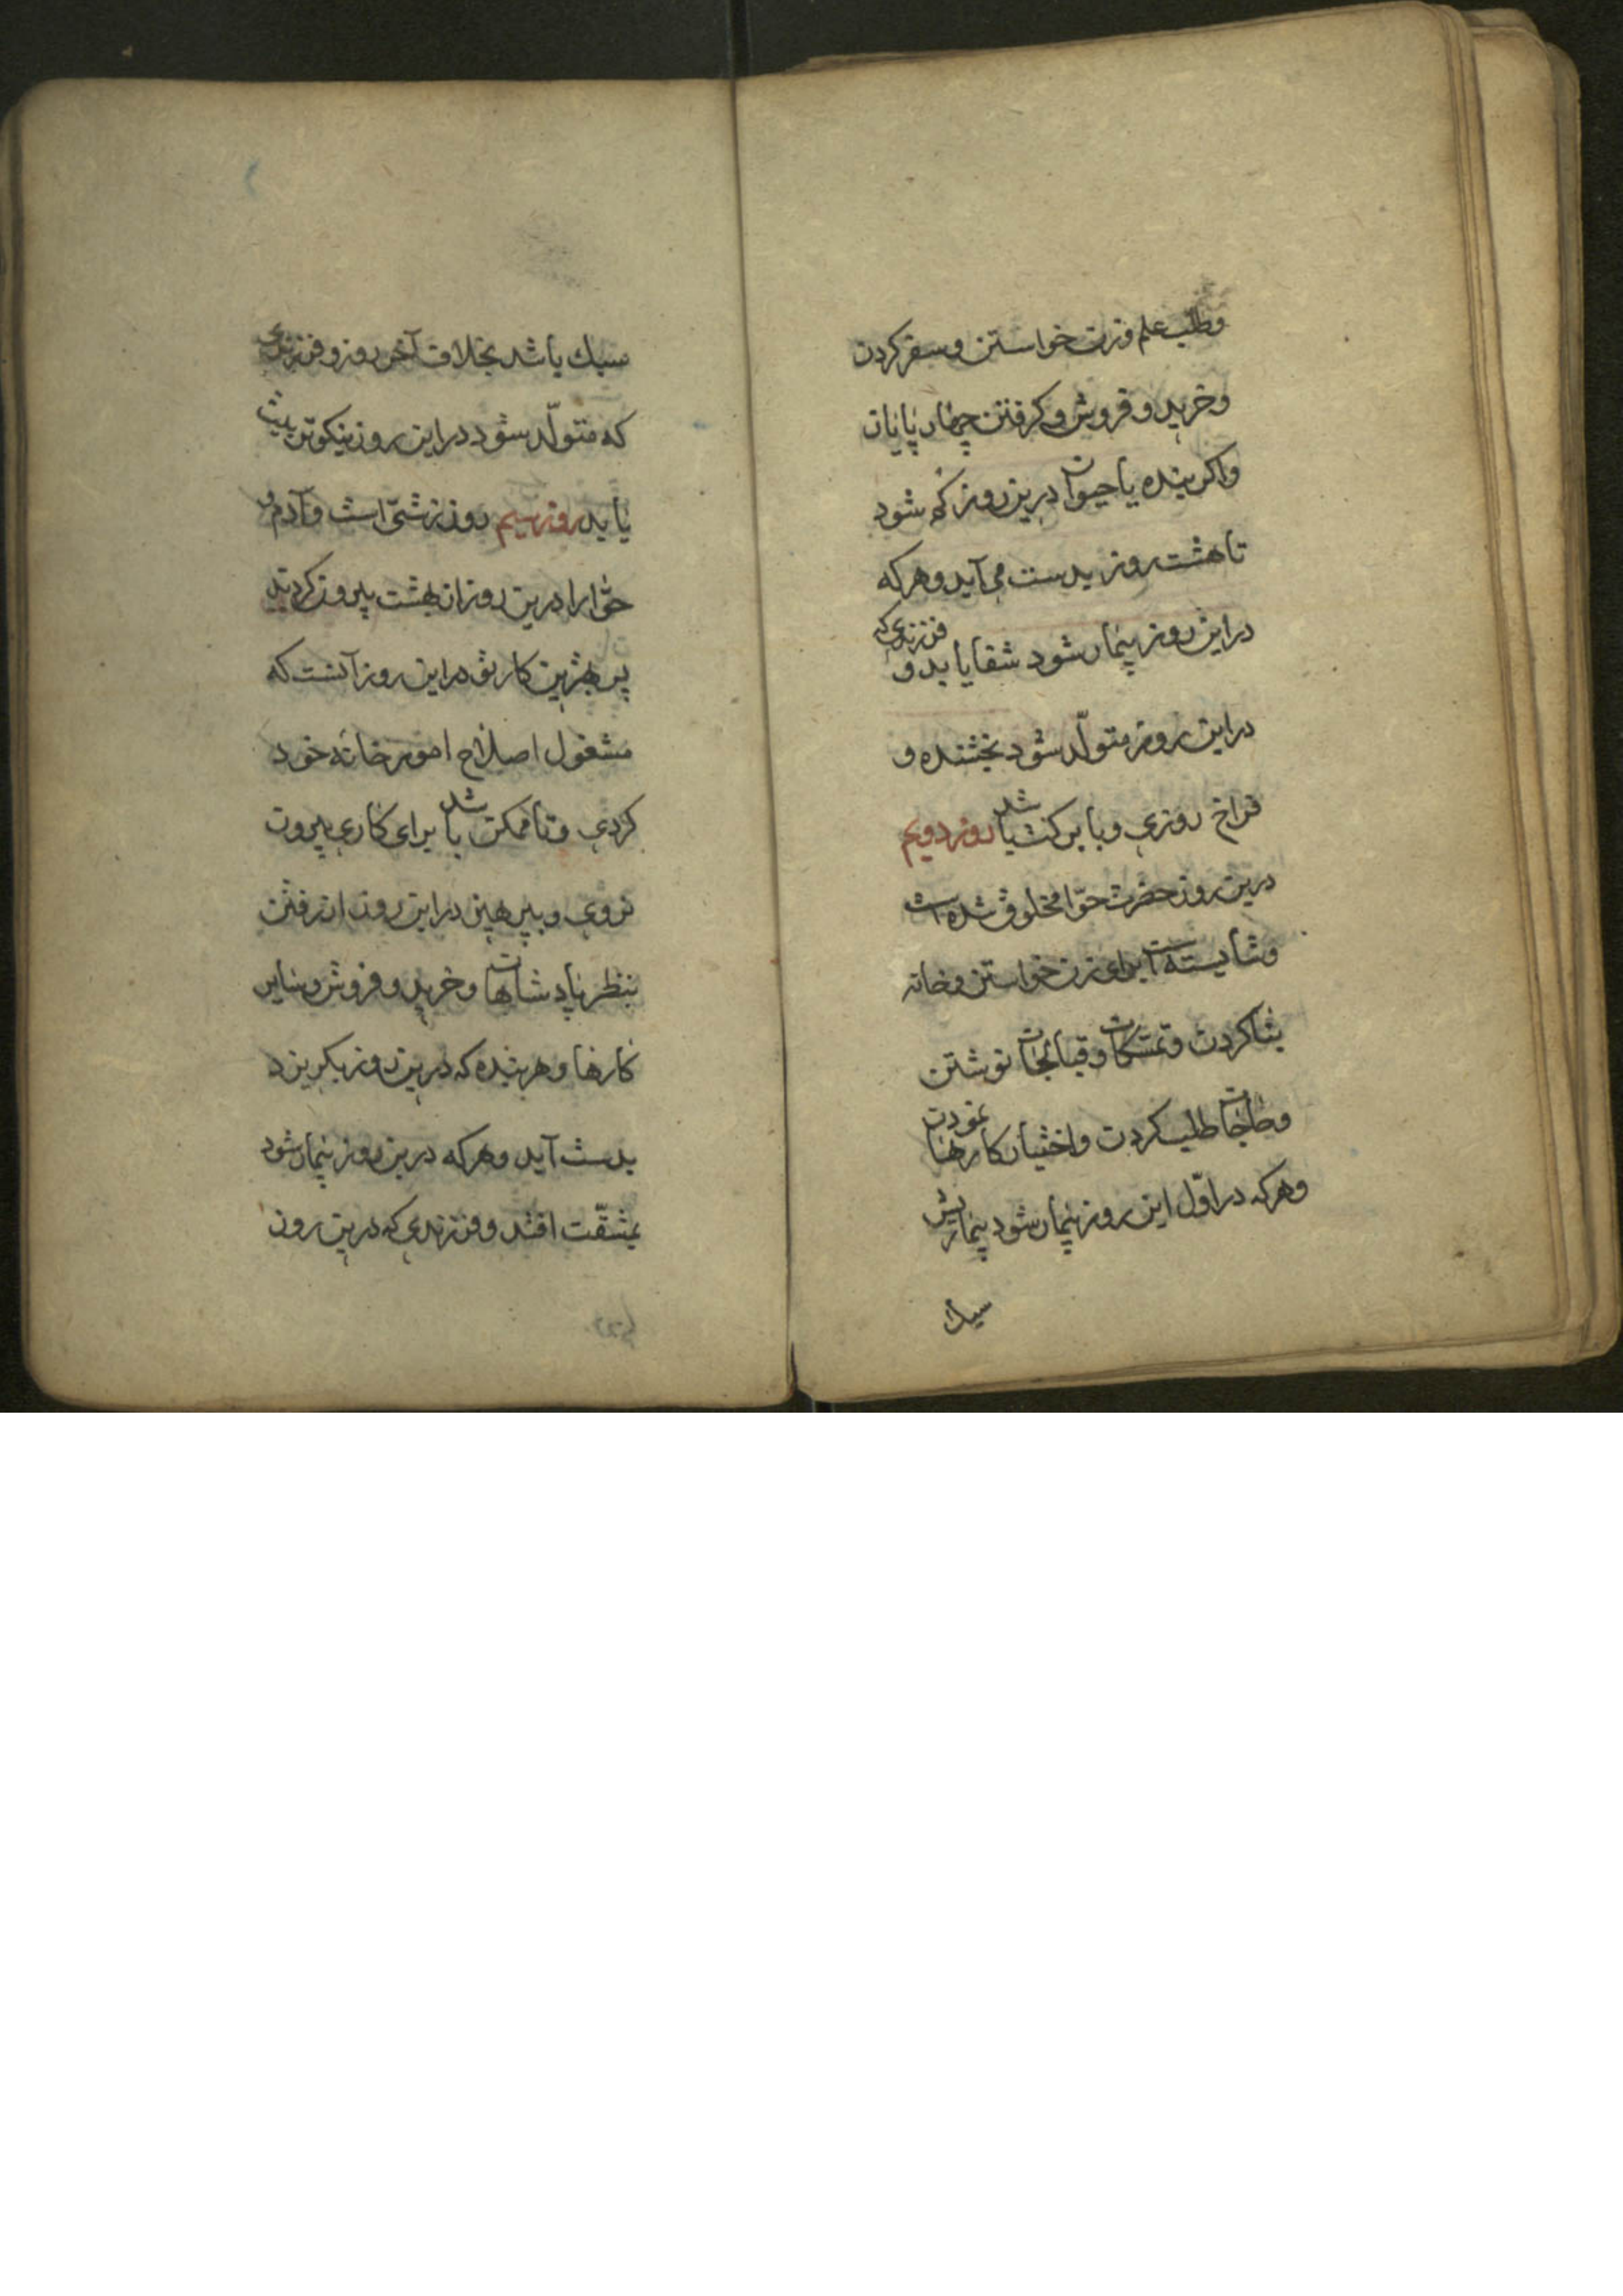 وطلب علم و زن خواستن و سفر کردن
و خرید و فروش و کرفتن چهار پایان
و اکر بنده یا حیوان درین روز کم شود
تا هشت روز بدست می آید و هر که
در این روز بیمار شود شفا یابد و فرزندی که
در این روز متولّد شود بخشنده و
فراخ روزی و با برکت باشد روز دویم
درین روز حضرت حوّا مخلوق شده است
و شایسته است برای زن خواستن و خانه
بنا کردن و تمسکات و قبالجات نوشتن
و حاجات طلب کردن و اختیار کارها نمودن
و هر که در اوّل این روز بیمار شود بیماریش
سبک
سبک باشد بخلاف آخر روز و فرزندی
که متولّد شود در این روز نیکو تربیت
یابد روز سیم روز نحسی است و آدم و
حوّا را درین روز از بهشت بیرون کردند
پس بهترین کار تو در این روز آنست که
مشغول اصلاح امور خانه خود
کردی و تا ممکن باشد برای کاری بیرون
نروی و بپرهیز در این روز از رفتن
بنظر پادشاهان و خرید و فروش و سایر
کارها و هر بنده که درین روز بکریزد
بدست آید و هر که درین روز بیمار شود
بمشقّت افتد و فرزندی که درین روز